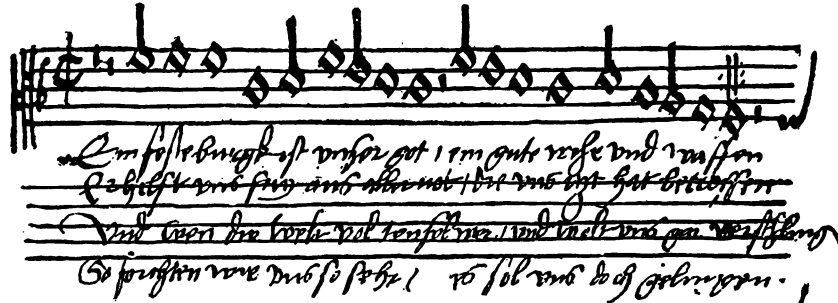 Ein feste burgk ist unser got, ein gute wehr und waffen
Er helft uns frey aus aller not, die uns itzt hat betroffen
Und wen die welt vol teufel wer, und wolt uns gar verschling
So forchten wir uns so sehr, es sol uns doch gelingen.